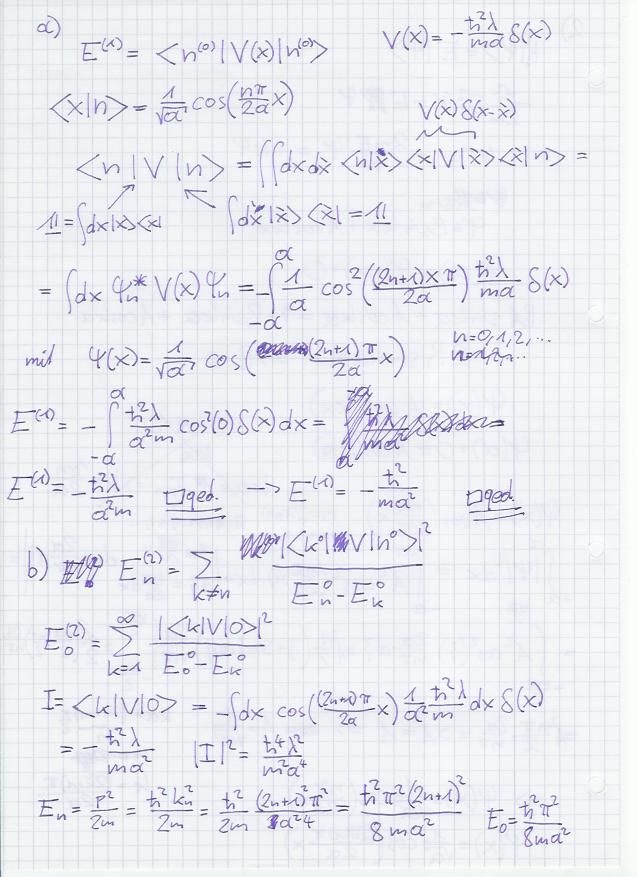 a) E⁽¹⁾ = <n⁽⁰⁾|V(x)|n⁽⁰⁾>   V(x) = -ħ²λ/(ma) δ(x)
<x|n> = 1/√a cos(nπ/(2a) x)
V(x) δ(x-x̃)
<n|V|n> = ∫∫dx dx̃ <n|x><x|V|x̃><x̃|n> =
𝟙 = ∫dx|x><x|   ∫dx̃|x̃><x̃| = 𝟙
= ∫dx Ψₙ* V(x) Ψₙ = -∫₋ₐᵃ 1/a cos²((2n+1)xπ/(2a)) ħ²λ/(ma) δ(x)
mit Ψ(x) = 1/√a cos((2n+1)π/(2a) x)   n=0,1,2,...
E⁽¹⁾ = -∫₋ₐᵃ ħ²λ/(a²m) cos²(0) δ(x) dx =
E⁽¹⁾ = -ħ²λ/(a²m)   □ qed.   → E⁽¹⁾ = -ħ²/(ma²)   □ qed.
b) Eₙ⁽²⁾ = Σ_{k≠n} |<k⁰|V|n⁰>|²/(Eₙ⁰ - Eₖ⁰)
E₀⁽²⁾ = Σ_{k=1}^∞ |<k|V|0>|²/(E₀⁰ - Eₖ⁰)
I = <k|V|0> = -∫dx cos((2n+1)π/(2a) x) 1/a² ħ²λ/m dx δ(x)
= -ħ²λ/(ma²)   |I|² = ħ⁴λ²/(m²a⁴)
Eₙ = p²/(2m) = ħ²kₙ²/(2m) = ħ²/(2m) (2n+1)²π²/(a²4) = ħ²π²(2n+1)²/(8ma²)   E₀ = ħ²π²/(8ma²)